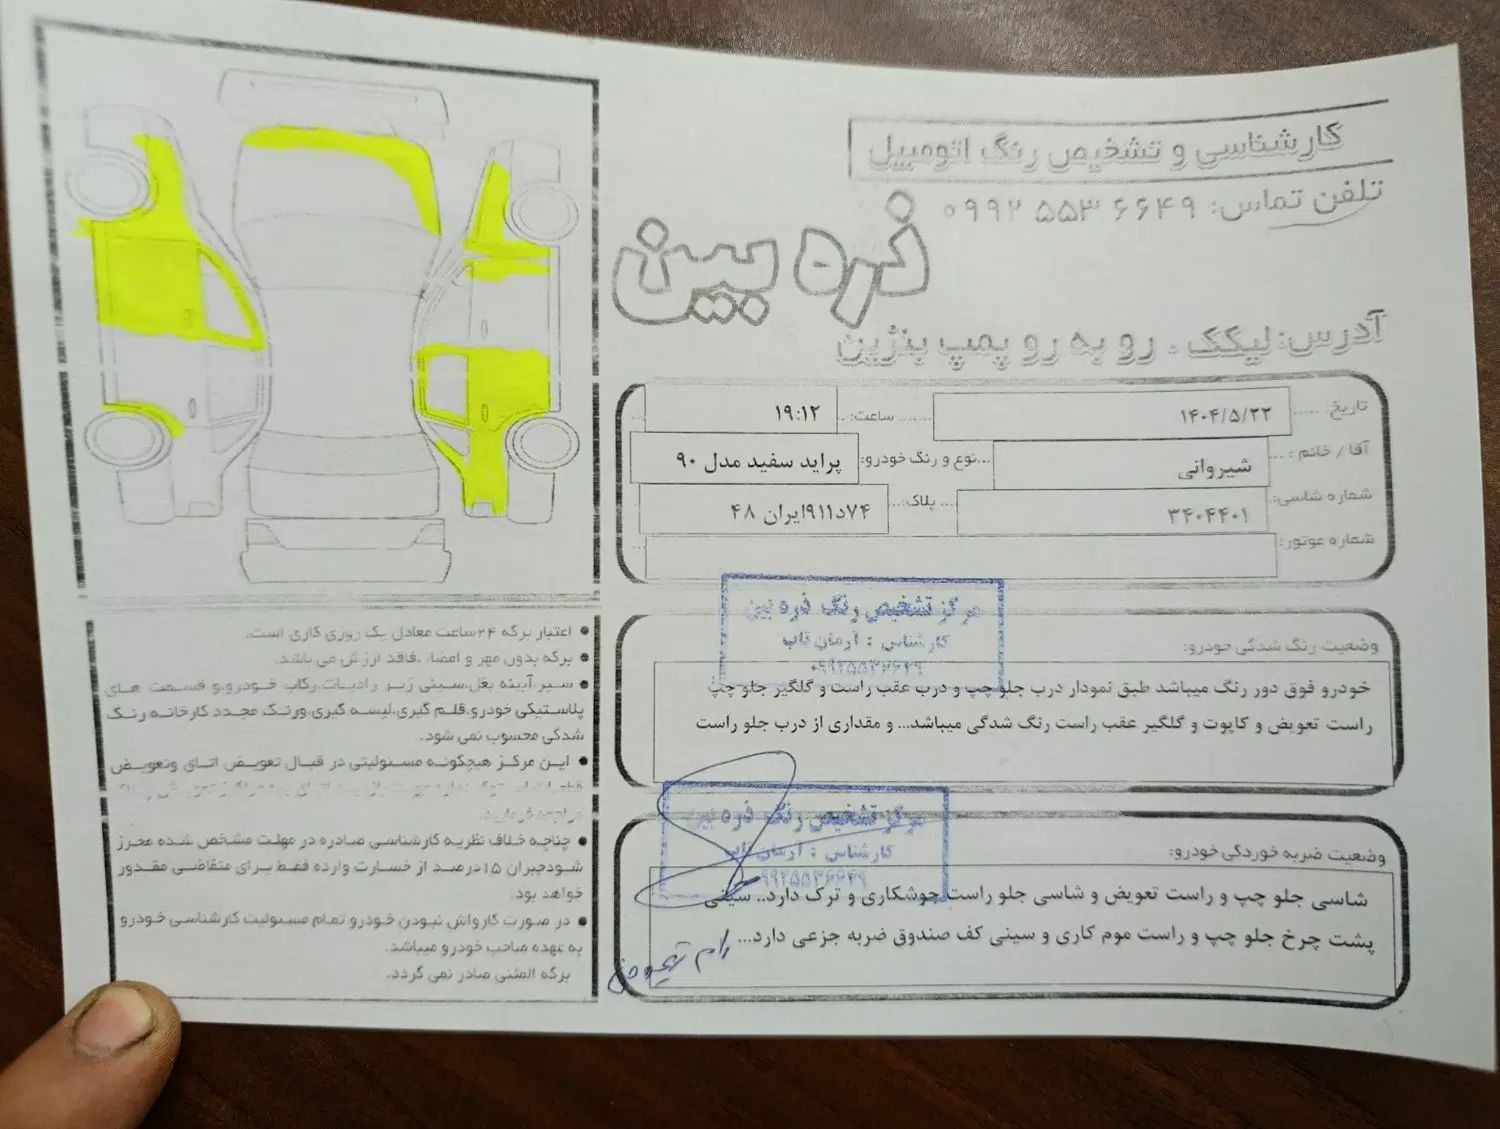 کارشناسی و تشخیص رنگ اتومبیل
تلفن تماس: ۰۹۹۲ ۵۵۳ ۶۶۴۹
ذره بین
آدرس: لیکک - رو به رو پمپ بنزین
تاریخ: ۱۴۰۴/۵/۲۲ ساعت: ۱۹:۱۲
آقا / خانم: شیروانی نوع و رنگ خودرو: پراید سفید مدل ۹۰
شماره شاسی: ۳۴۰۴۴۰۱ پلاک: ۷۴د۹۱۱ایران ۴۸
شماره موتور:
مرکز تشخیص رنگ ذره بین
کارشناس : آرمان تاب
۰۹۹۲۵۵۳۶۶۴۹
وضعیت رنگ شدگی خودرو:
خودرو فوق دور رنگ میباشد طبق نمودار درب جلو چپ و درب عقب راست و گلگیر جلو چپ
راست تعویض و کاپوت و گلگیر عقب راست رنگ شدگی میباشد... و مقداری از درب جلو راست
مرکز تشخیص رنگ ذره بین
کارشناس : آرمان تاب
۰۹۹۲۵۵۳۶۶۴۹
وضعیت ضربه خوردگی خودرو:
شاسی جلو چپ و راست تعویض و شاسی جلو راست جوشکاری و ترک دارد.. سینی
پشت چرخ جلو چپ و راست موم کاری و سینی کف صندوق ضربه جزعی دارد...
• اعتبار برگه ۲۴ساعت معادل یک روزی کاری است.
• برگه بدون مهر و امضاء ،فاقد ارزش می باشد.
• سپر،آیینه بغل،سینی زیر رادیات،رکاب خودرو،و قسمت های
پلاستیکی خودرو،قلم گیری،لیسه گیری،ورنگ مجدد کارخانه رنگ
شدگی محسوب نمی شود.
• این مرکز هیچگونه مسئولیتی در قبال تعویض اتاق وتعویض
مراجعه فرمایید.
• چناچه خلاف نظریه کارشناسی صادره در مهلت مشخص شده محرز
شودجبران ۱۵درصد از خسارت وارده فقط برای متقاضی مقدور
خواهد بود.
• در صورت کارواش نبودن خودرو تمام مسئولیت کارشناسی خودرو
به عهده صاحب خودرو میباشد.
برگه المثنی صادر نمی گردد.